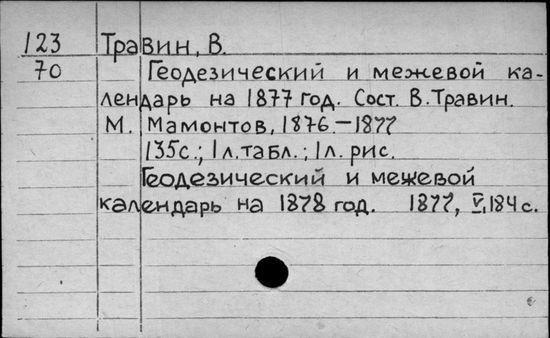 123 Травин, В.
70 Геодезический и межевой ка-
лендарь на 1877 год. Сост. В. Травин.
М. Мамонтов, 1876.—1877
135с.; 1л.табл.; 1л. рис.
Геодезический и межевой
календарь на 1878 год. 1877, V, 184 с.